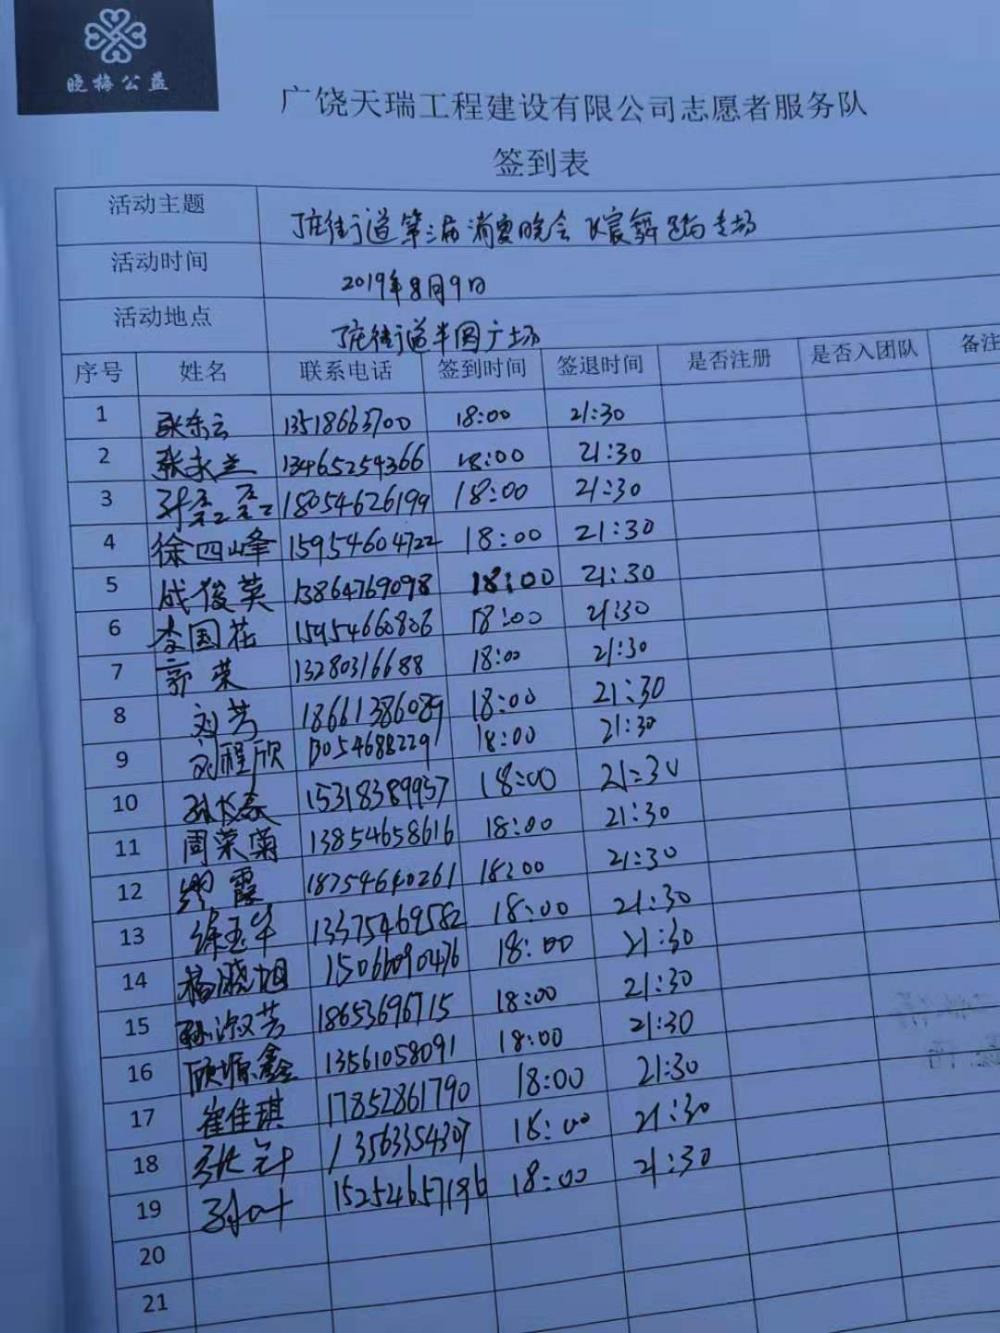 晓梅公益
广饶天瑞工程建设有限公司志愿者服务队
签到表
活动主题 丁庄街道第三届消夏晚会 舞蹈专场
活动时间 2019年8月9日
活动地点 丁庄街道半圆广场
序号 姓名 联系电话 签到时间 签退时间 是否注册 是否入团队 备注
1 张东云 13518663700 18:00 21:30
2 张永兰 13465254366 18:00 21:30
3 18054626199 18:00 21:30
4 徐四峰 15954604722 18:00 21:30
5 成俊英 13864769098 18:00 21:30
6 李国花 15954660806 18:00 21:30
7 郭荣 13280316688 18:00 21:30
8 刘芳 18661386089 18:00 21:30
9 刘程欣 13054688229 18:00 21:30
10 15318389957 18:00 21:30
11 周荣菊 13854658616 18:00 21:30
12 缪霞 18754640261 18:00 21:30
13 徐玉华 13375469582 18:00 21:30
14 杨晓旭 15066090476 18:00 21:30
15 孙淑芳 18653696715 18:00 21:30
16 顾塬鑫 13561058091 18:00 21:30
17 崔佳琪 17852861790 18:00 21:30
18 13563354307 18:00 21:30
19 152524657196 18:00 21:30
20
21